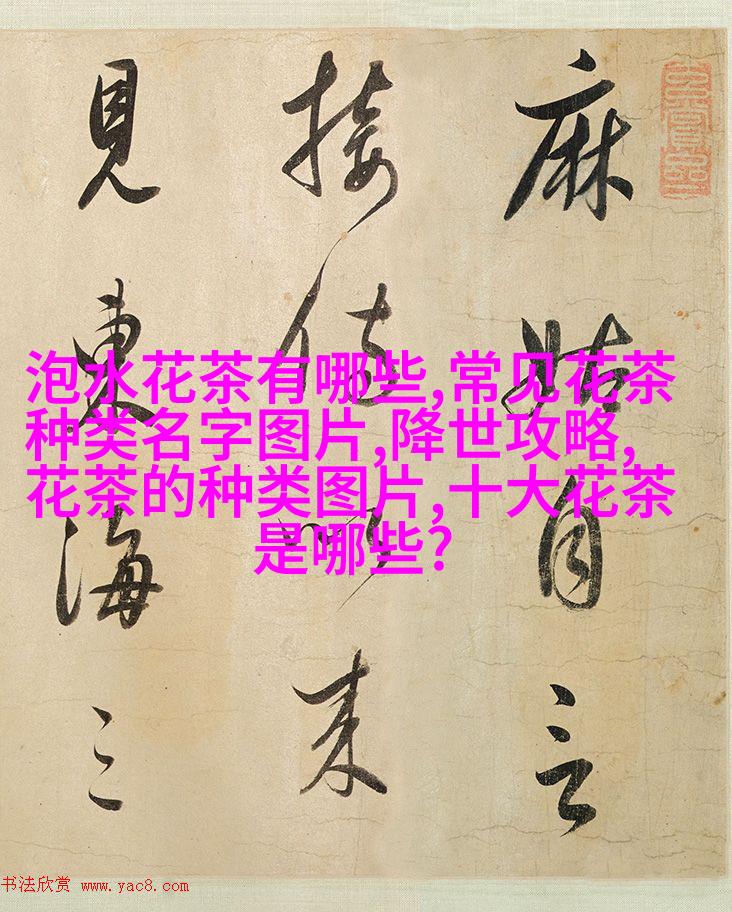 麻姑自言
接侍以来
見東海三
泡水花茶有哪些,常见花茶
种类名字图片,降世攻略,
花茶的种类图片,十大花茶
是哪些?
书法欣赏 www.yac8.com